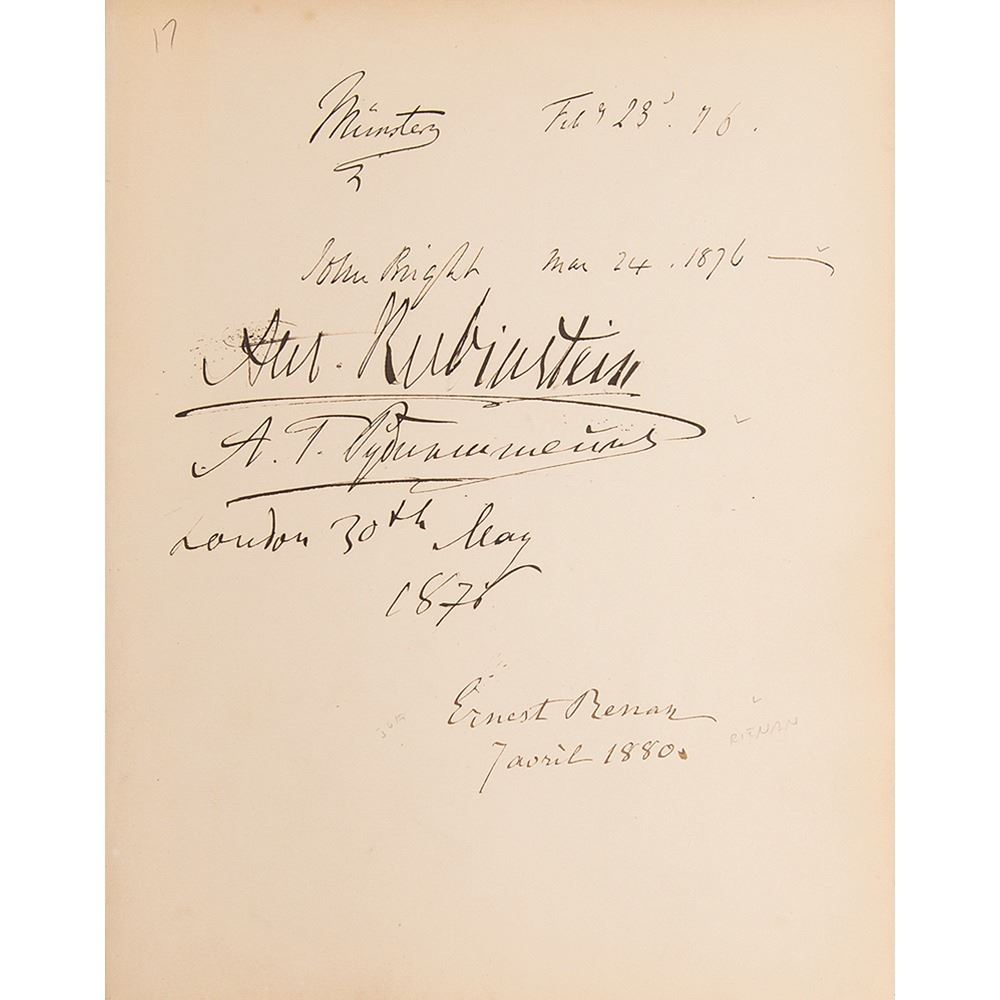 17
Münster Feby 23d. 76.
John Bright Mar 24. 1876
Ant. Rubinstein
А. Г. Рубинштейнъ
London 30th May
1876
Ernest Renan
7 avril 1880.
RIENAN